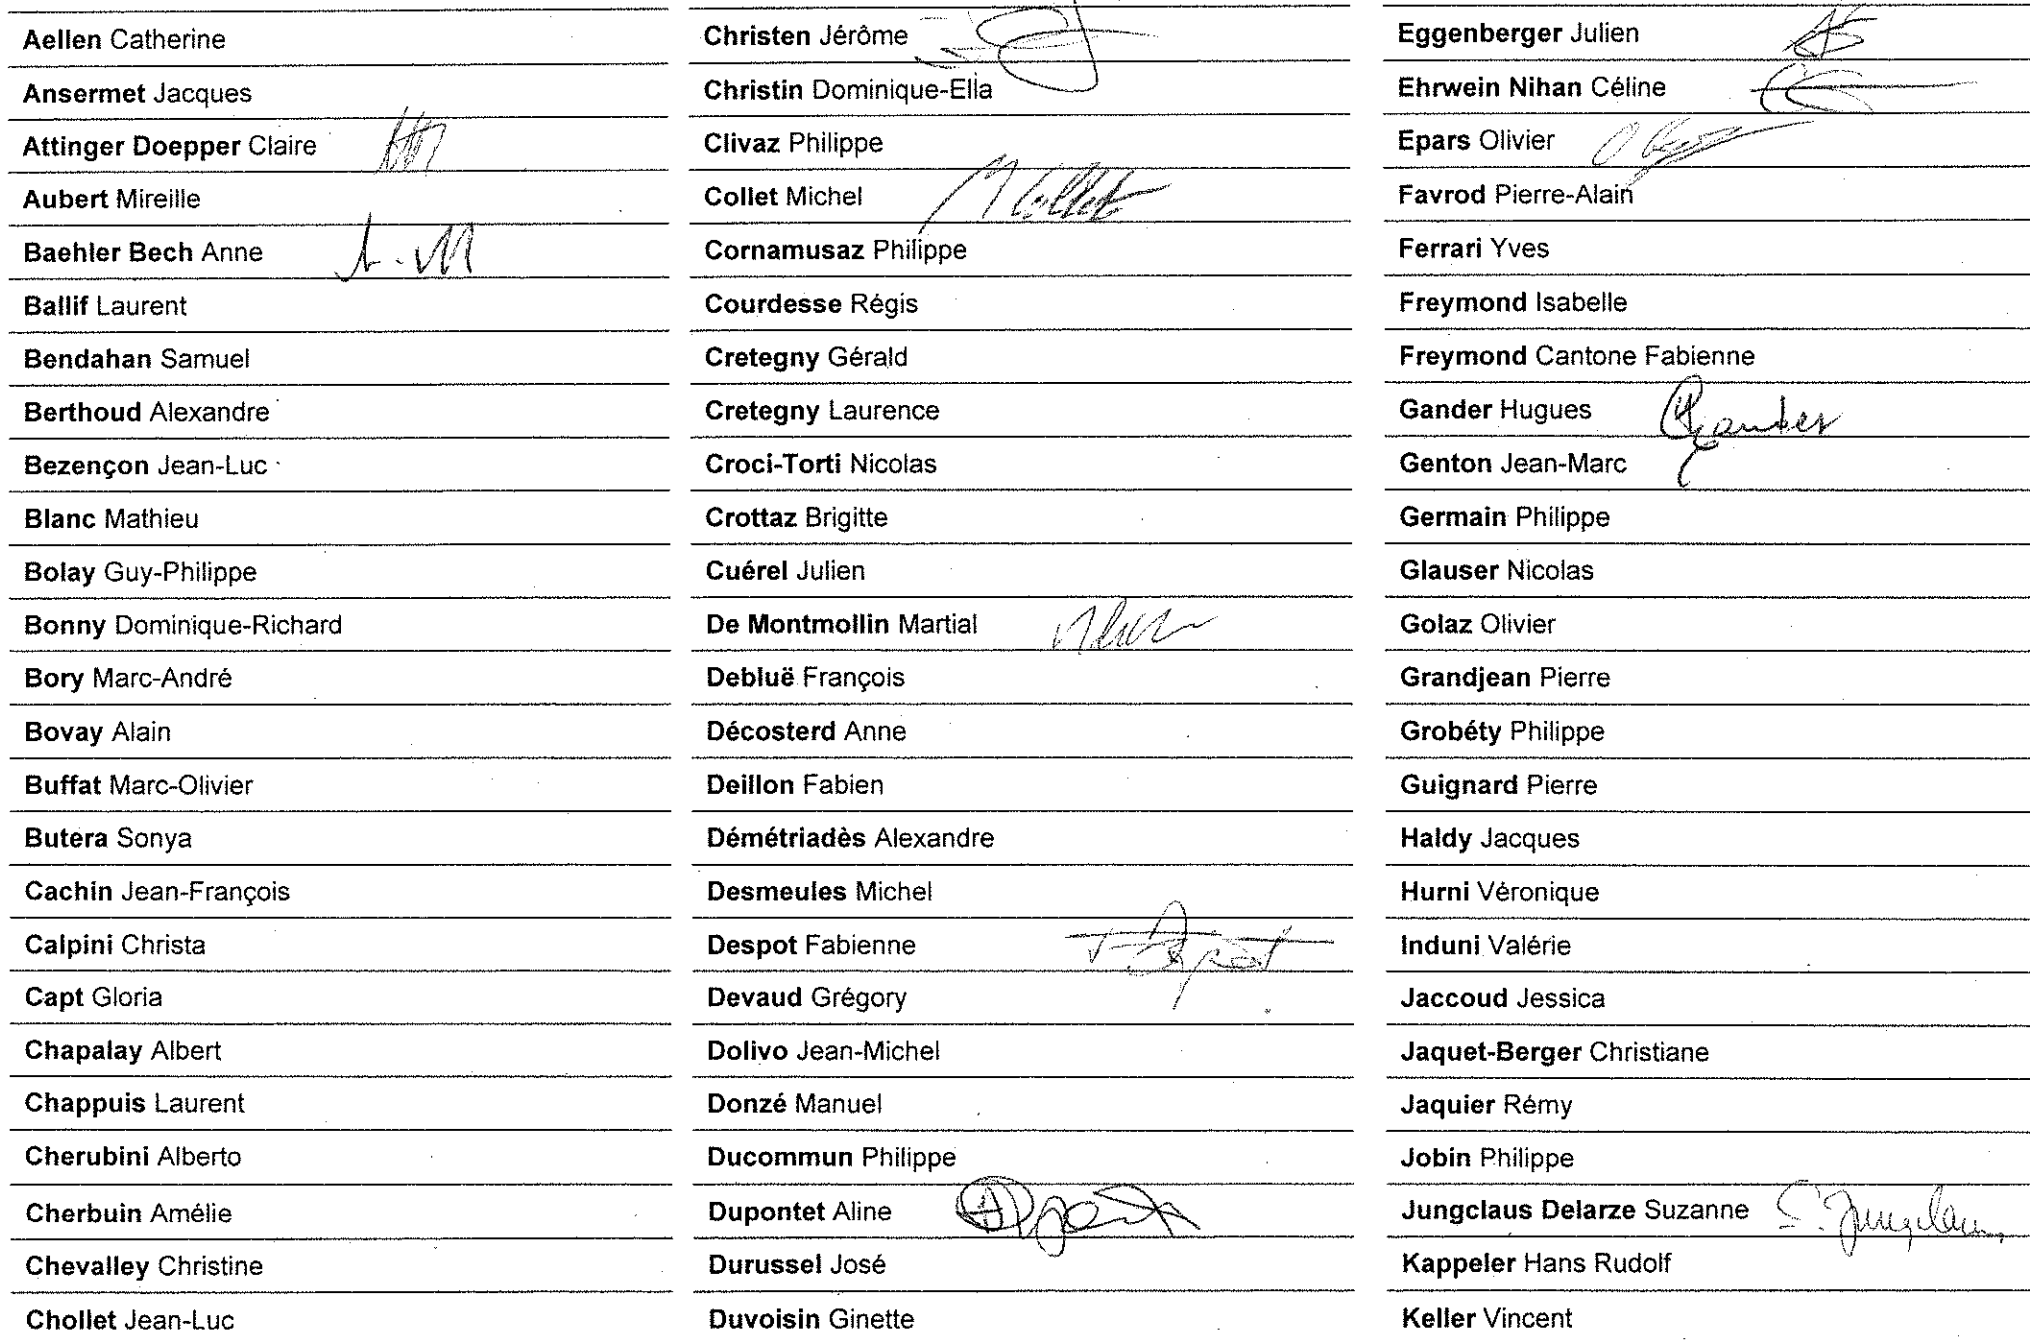 Aellen Catherine
Ansermet Jacques
Attinger Doepper Claire
Aubert Mireille
Baehler Bech Anne
Ballif Laurent
Bendahan Samuel
Berthoud Alexandre
Bezençon Jean-Luc
Blanc Mathieu
Bolay Guy-Philippe
Bonny Dominique-Richard
Bory Marc-André
Bovay Alain
Buffat Marc-Olivier
Butera Sonya
Cachin Jean-François
Calpini Christa
Capt Gloria
Chapalay Albert
Chappuis Laurent
Cherubini Alberto
Cherbuin Amélie
Chevalley Christine
Chollet Jean-Luc
Christen Jérôme
Christin Dominique-Ella
Clivaz Philippe
Collet Michel M Collet
Cornamusaz Philippe
Courdesse Régis
Cretegny Gérald
Cretegny Laurence
Croci-Torti Nicolas
Crottaz Brigitte
Cuérel Julien
De Montmollin Martial
Debluë François
Décosterd Anne
Deillon Fabien
Démétriadès Alexandre
Desmeules Michel
Despot Fabienne
Devaud Grégory
Dolivo Jean-Michel
Donzé Manuel
Ducommun Philippe
Dupontet Aline
Durussel José
Duvoisin Ginette
Eggenberger Julien
Ehrwein Nihan Céline
Epars Olivier
Favrod Pierre-Alain
Ferrari Yves
Freymond Isabelle
Freymond Cantone Fabienne
Gander Hugues Gander
Genton Jean-Marc
Germain Philippe
Glauser Nicolas
Golaz Olivier
Grandjean Pierre
Grobéty Philippe
Guignard Pierre
Haldy Jacques
Hurni Véronique
Induni Valérie
Jaccoud Jessica
Jaquet-Berger Christiane
Jaquier Rémy
Jobin Philippe
Jungclaus Delarze Suzanne S. Jungclaus
Kappeler Hans Rudolf
Keller Vincent